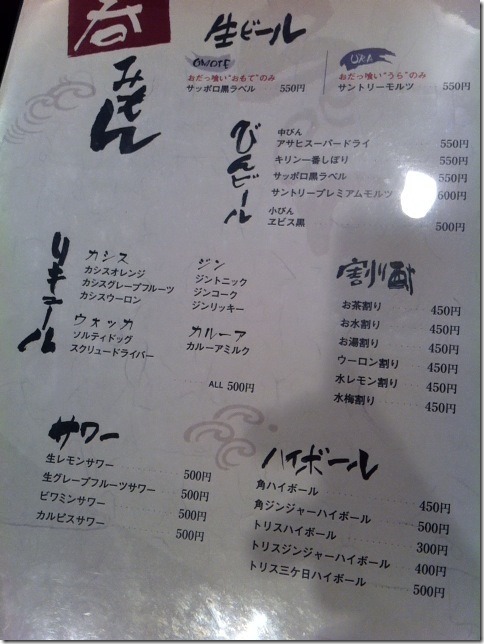 呑
みもん
生ビール
OMOTE
おだっ喰い"おもて"のみ
サッポロ黒ラベル 550円
URA
おだっ喰い"うら"のみ
サントリーモルツ 550円
びんビール
中びん
アサヒスーパードライ 550円
キリン一番しぼり 550円
サッポロ黒ラベル 550円
サントリープレミアムモルツ 600円
小びん
ヱビス黒 500円
リキュール
カシス
カシスオレンジ
カシスグレープフルーツ
カシスウーロン
ウォッカ
ソルティドッグ
スクリュードライバー
ジン
ジントニック
ジンコーク
ジンリッキー
カルーア
カルーアミルク
ALL 500円
割り酎
お茶割り 450円
お水割り 450円
お湯割り 450円
ウーロン割り 450円
水レモン割り 450円
水梅割り 450円
サワー
生レモンサワー 500円
生グレープフルーツサワー 500円
ビワミンサワー 500円
カルピスサワー 500円
ハイボール
角ハイボール 450円
角ジンジャーハイボール 500円
トリスハイボール 300円
トリスジンジャーハイボール 400円
トリス三ケ日ハイボール 500円